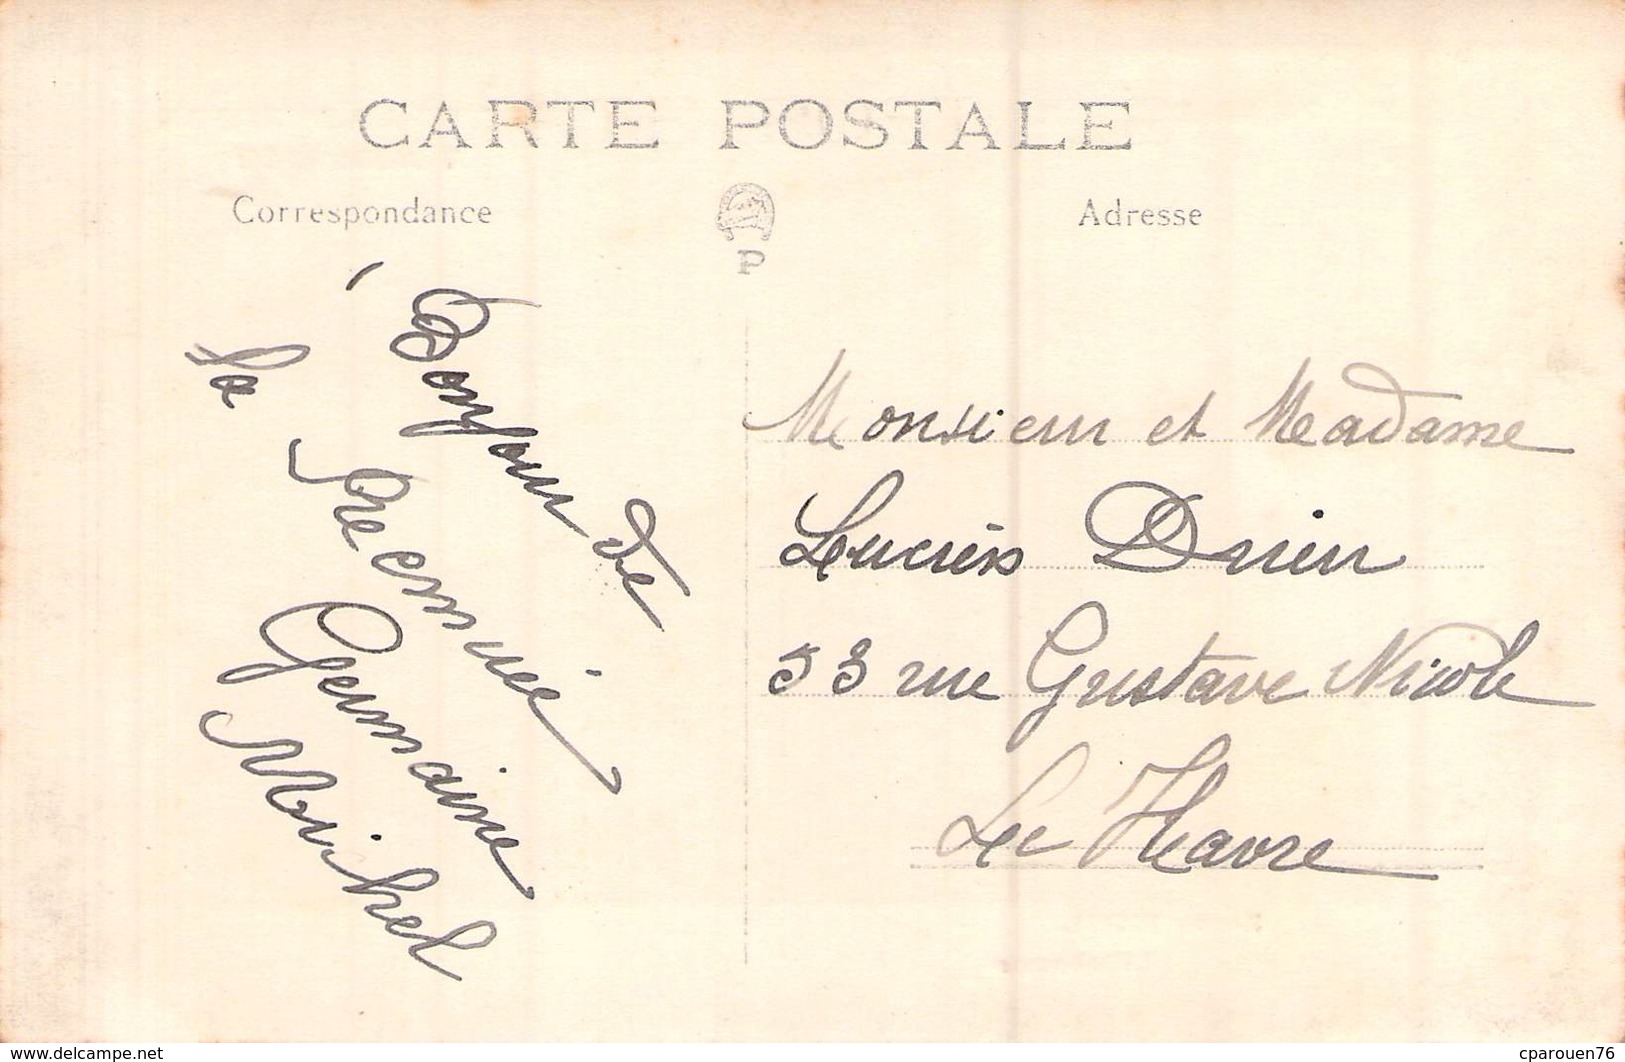 CARTE POSTALE
Correspondance
Adresse
P
Bonjour de
la
Germaine
Michel
Monsieur et Madame
Lucien
53 rue Gustave Nicole
Le Havre
www.delcampe.net
cparouen76